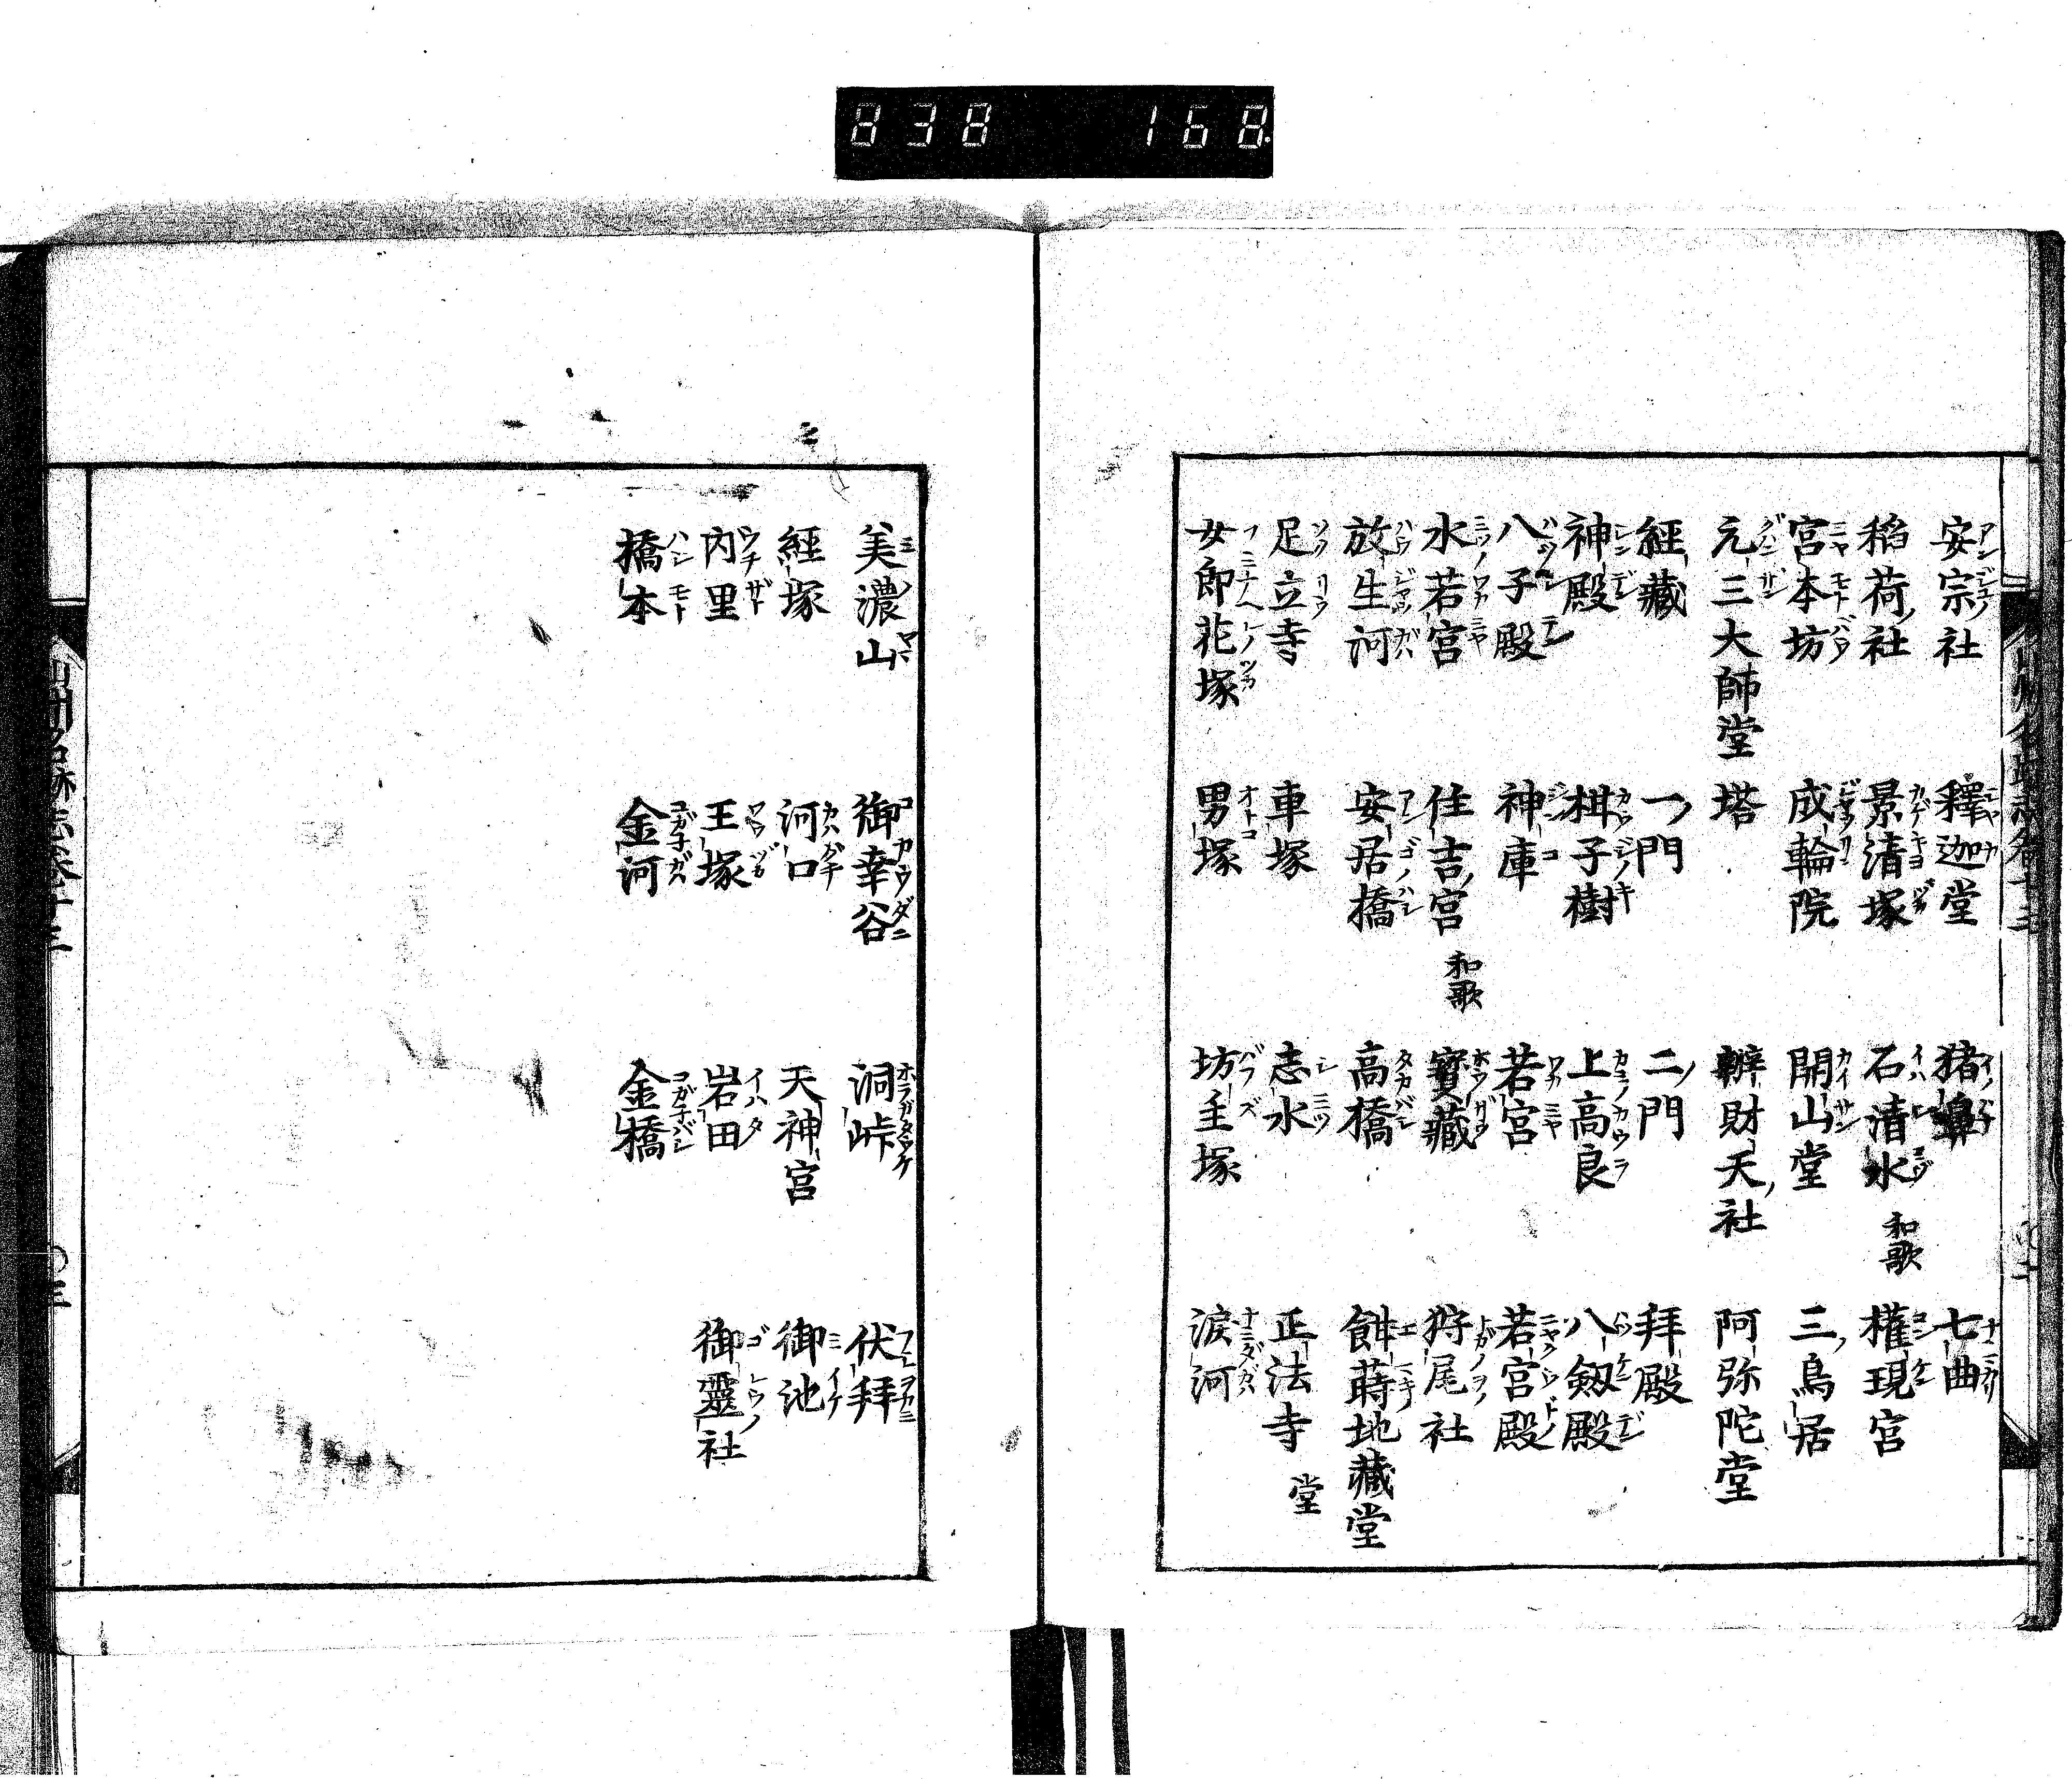 838 168
安宗社 釋迦堂 猪鼻 七曲
稻荷社 景清塚 石清水 和歌 權現宮
宮本坊 成輪院 開山堂 三ノ鳥居
元三大師堂 塔 辨財天社 阿弥陀堂
經藏 一ノ門 二ノ門 拜殿
神殿 柑子樹 上高良 八劔殿
八子殿 神庫 若宮 若宮殿
水若宮 住吉宮 和歌 寳藏 狩尾社
放生河 安居橋 高橋 蒔地藏堂
足立寺 車塚 志水 正法寺 堂
女郎花塚 男塚 坊主塚 淚河
美濃山 御幸谷 洞峠 伏拜
經塚 河口 天神宮 御池
內里 王塚 岩田 御靈社
橋本 金河 金橋